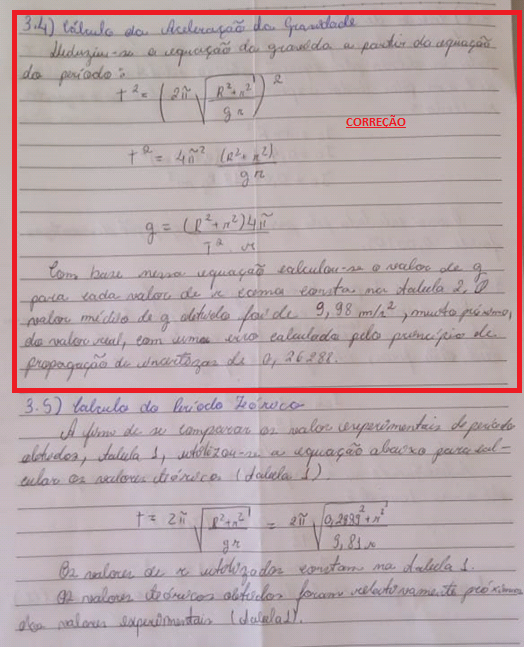 3.4) Cálculo da Aceleração da Gravidade
Deduziu-se a equação da gravida a partir da equação
do período:
T² = (2π √((R²+r²)/(g r)))²
CORREÇÃO
T² = 4π² (R²+r²)/(g r)
g = (R²+r²)4π / (T² r)
Com base nessa equação calculou-se o valor de g
para cada valor de r como consta na tabela 2. O
valor médio de g obtido foi de 9,98 m/s², muito próximo,
do valor real, com uma erro calculado pelo princípio de
propagação de incertezas de 0,26288.
3.5) Calculo do Período Teórico
A fim de se comparar os valor experimentais de período
obtidos, tabela 1, utilizou-se a equação abaixo para cal-
cular os valores teóricos (tabela 1).
T = 2π √((R²+r²)/(g r)) = 2π √((0,2899²+r²)/(9,81 r))
Os valores de r utilizados constam na tabela 1.
Os valores teóricos obtidos foram relativamente próximos
dos valores experimentais (tabela 1).